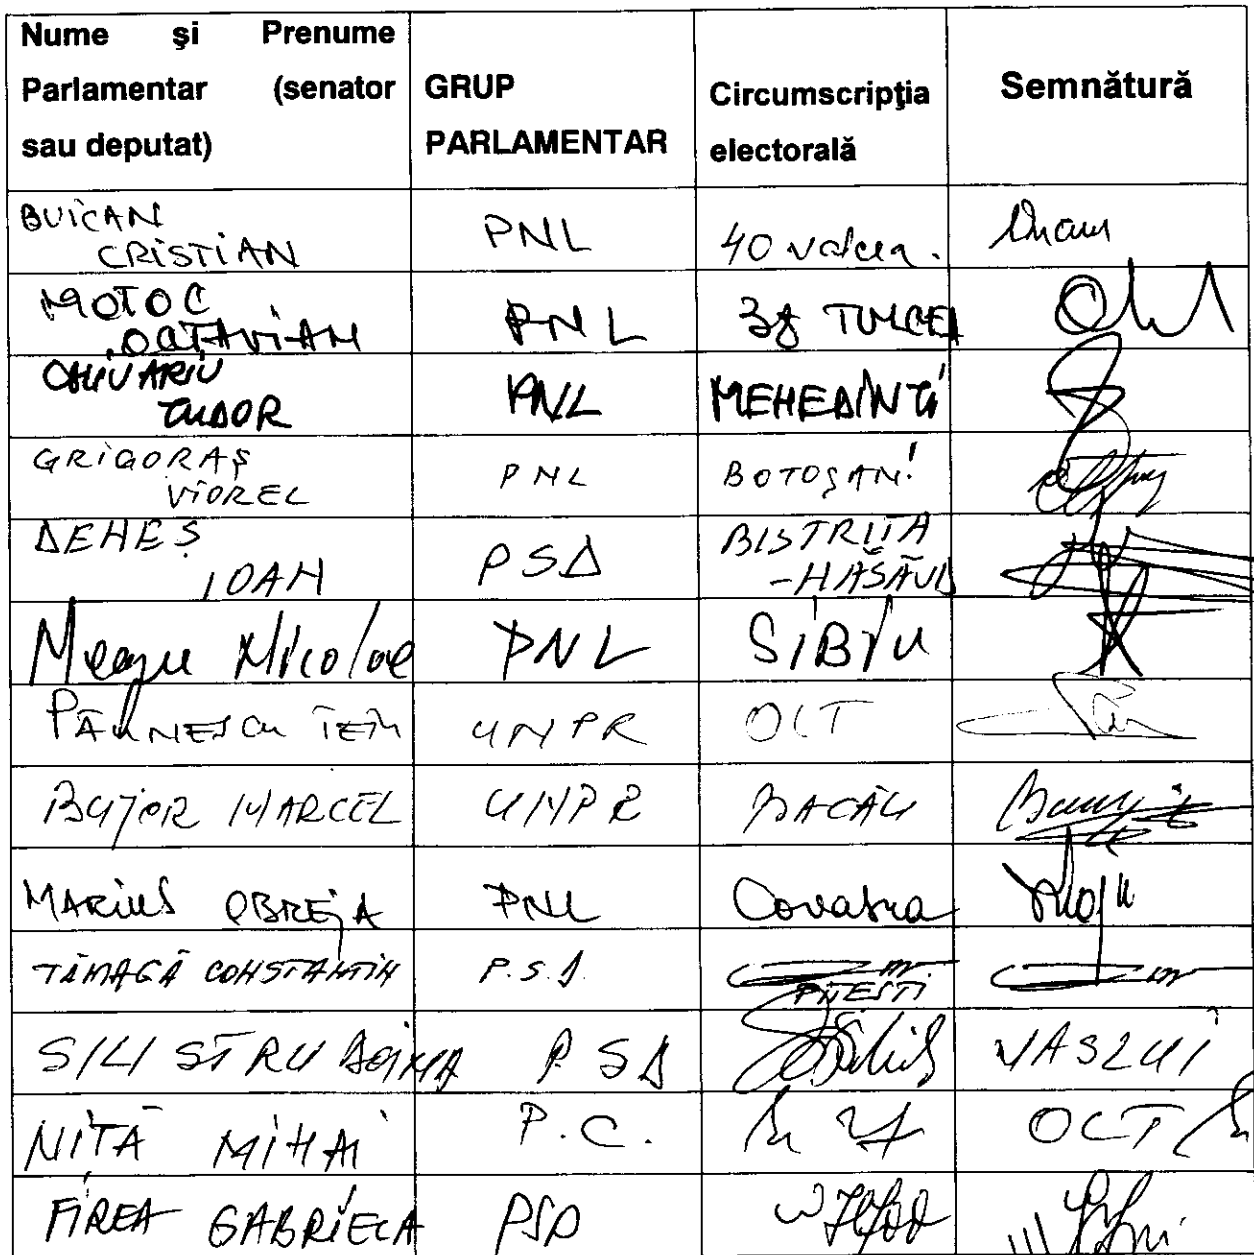 Nume şi Prenume
Parlamentar (senator
sau deputat)
GRUP
PARLAMENTAR
Circumscripţia
electorală
Semnătură
BUICAN
CRISTIAN
PNL
40 Valcea.
MOTOC
OCTAVIAN
PNL
38 TULCEA
CHIUARIU
TUDOR
PNL
MEHEDINTI
GRIGORAŞ
VIOREL
PNL
BOTOŞANI
DEHEŞ
IOAN
PSD
BISTRIŢA
-NĂSĂUD
Nicolae
PNL
SIBIU
UNPR
OLT
BUJOR MARCEL
UNPR
BACĂU
MARIUS OBREJA
PNL
Covasna
TĂMAGĂ CONSTANTIN
P.S.D.
PITESTI
SILISTRU DOINA
PSD
VASLUI
NITĂ MIHAI
P.C.
OLT
FIREA GABRIELA
PSD